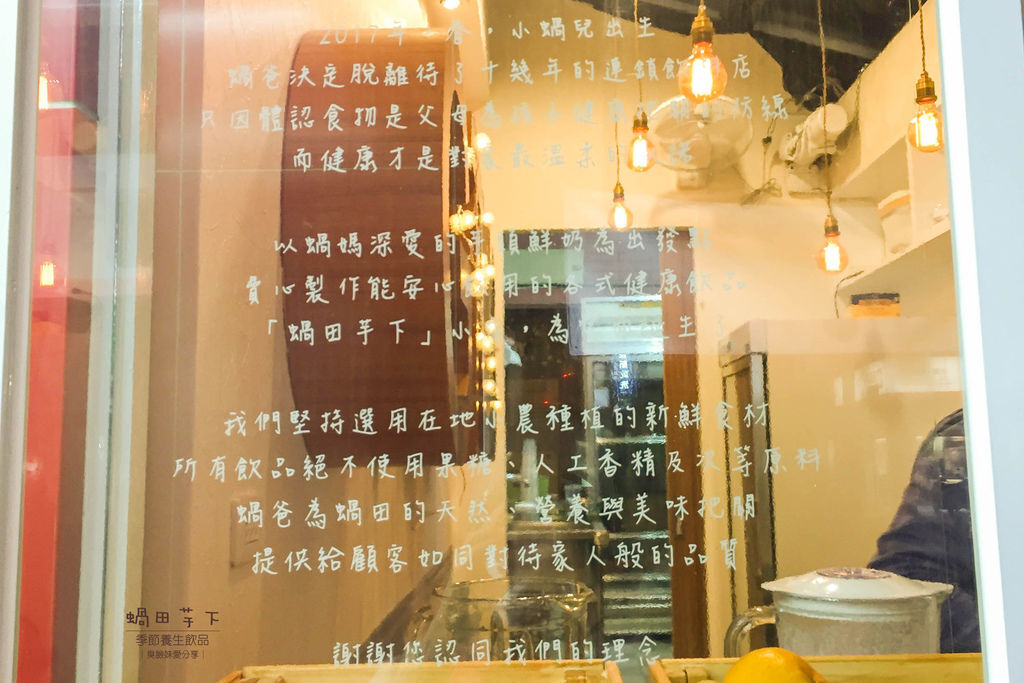 2017年 春，小蝸兒出生
蝸爸決定脫離待了十幾年的連鎖飲 店
只因體認食物是父母為孩子健康 防線
而健康才是對 最溫柔的
以蝸媽深愛的 頭鮮奶為出發點
實心製作能安心飲用的各式健康飲品
「蝸田芋下」小 ，為 生了
我們堅持選用在地小農種植的新鮮食材
所有飲品絕不使用果糖、人工香精及次等原料
蝸爸為蝸田的天然、營養與美味把關
提供給顧客如同對待家人般的品質
謝謝您認同我們的理念
蝸田芋下
季節養生飲品
| 臭臉妹愛分享 |